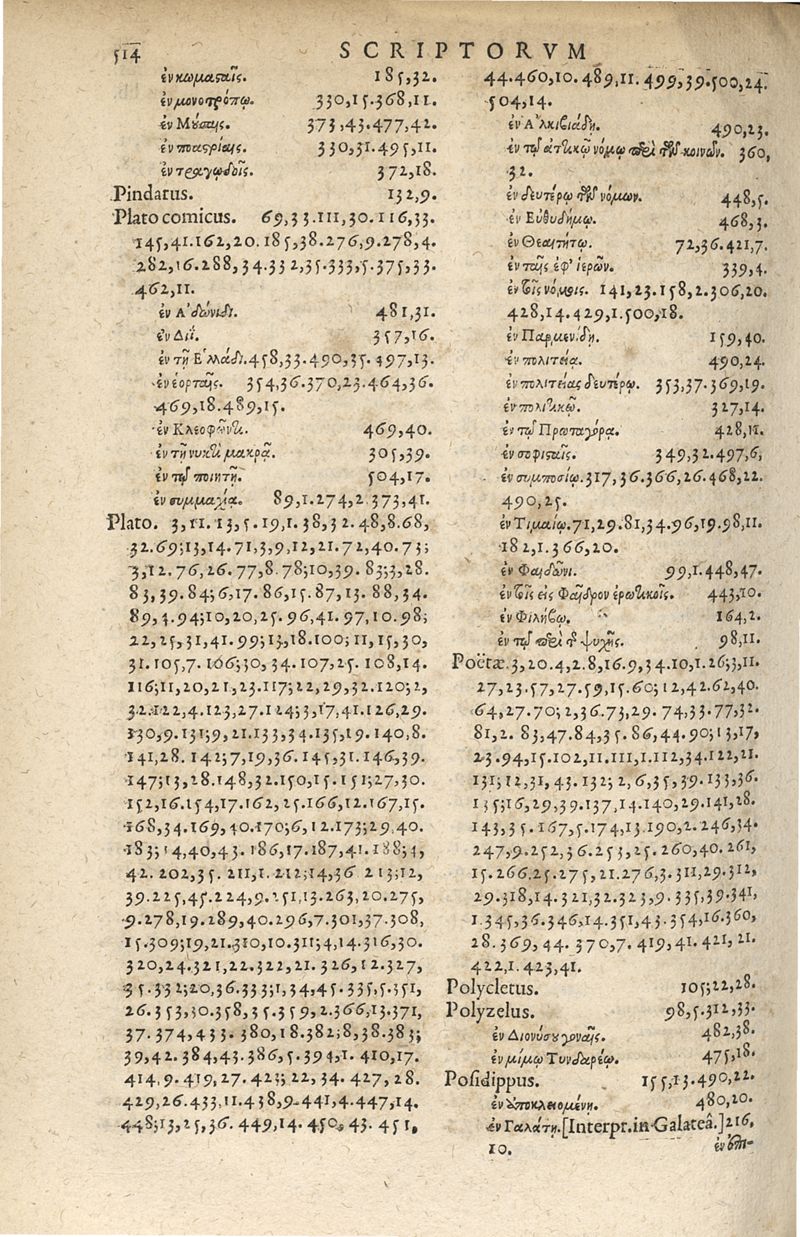 514 SCRIPTORVM
ἐν κωμασταῖς. 185,32.
ἐν μονοτρόπῳ. 330,15.368,11.
ἐν Μύσταις. 373,43.477,42.
ἐν παστρίαις. 330,31.495,11.
ἐν τραγῳδοῖς. 372,18.
Pindarus. 132,9.
Plato comicus. 69,33.111,30.116,33.
145,41.162,20.185,38.276,9.278,4.
282,16.288,34.332,35.333,5.375,33.
462,11.
ἐν Ἀδώνιδι. 481,31.
ἐν Διΐ. 357,16.
ἐν τῇ Ἑλλάδι.458,33.490,35.497,13.
ἐν ἑορταῖς. 354,36.370,23.464,36.
469,18.489,15.
ἐν Κλεοφῶντι. 469,40.
ἐν τῇ νυκτὶ μακρᾷ. 305,39.
ἐν τῷ ποιητῇ. 504,17.
ἐν συμμαχίᾳ. 89,1.274,2.373,41.
Plato. 3,11.13,5.19,1.38,32.48,8.68,
32.69;13,14.71,3,9,12,21.72,40.73;
3,12.76,26.77,8.78;10,39.83;3,28.
83,39.84;6,17.86,15.87,13.88,34.
89,4.94;10,20,25.96,41.97,10.98;
22,25,31,41.99;13,18.100;11,15,30,
31.105,7.106;30,34.107,25.108,14.
116;11,20,21,23.117;22,29,32.120;2,
32.122,4.123,27.124;3,17,41.126,29.
130,9.131;9,21.133,34.135,19.140,8.
141,28.142;7,19,36.145,31.146,39.
147;13,28.148,32.150,15.151;27,30.
152,16.154,17.162,25.166,12.167,15.
168,34.169,40.170;6,12.173;29,40.
183;14,40,43.186,17.187,41.188;4,
42.202,35.211,1.212;14,36 213;12,
39.225,45.224,9.251,13.263,20.275,
9.278,19.289,40.296,7.301,37.308,
15.309;19,21.310,10.311;4,14.316,30.
320,24.321,22.322,21.326,12.327,
35.332;20,36.333;1,34,45.335,5.351,
26.353,30.358,35.359,2.366,13.371,
37.374,433.380,18.382;8,38.383;
39,42.384,43.386,5.394,1.410,17.
414,9.419,27.423;22,34.427,28.
429,26.433,11.438,9.441,4.447,14.
448;13,25,36.449,14.450,43.451,
44.460,10.489,11.499,39.500,24.
504,14.
ἐν Ἀλκιβιάδῃ. 490,23.
ἐν τῷ ἀττικῷ νόμῳ περὶ τῶν κοινῶν. 360,
32.
ἐν δευτέρῳ τῶν νόμων. 448,5.
ἐν Εὐθυδήμῳ. 468,3.
ἐν Θεαιτήτῳ. 72,36.421,7.
ἐν ταῖς ἐφ' ἱερῶν. 339,4.
ἐν τοῖς νόμοις. 141,23.158,2.306,20.
428,14.429,1.500,18.
ἐν Παρμενίδῃ. 159,40.
ἐν πολιτείᾳ. 490,24.
ἐν πολιτείας δευτέρῳ. 353,37.369,19.
ἐν πολιτικῷ. 327,14.
ἐν τῷ Πρωταγόρᾳ. 428,11.
ἐν σοφισταῖς. 349,32.497,6,
ἐν συμποσίῳ.317,36.366,26.468,22.
490,25.
ἐν Τιμαίῳ.71,29.81,34.96,19.98,11.
182,1.366,20.
ἐν Φαίδωνι. 99,1.448,47.
ἐν τοῖς εἰς Φαῖδρον ἐρωτικοῖς. 443,10.
ἐν Φιλήβῳ. 164,2.
ἐν τῷ περὶ τῆς ψυχῆς. 98,11.
Poëtæ.3,20.4,2.8,16.9,34.10,1.26;3,11.
27,23.57,27.59,15.60;12,42.62,40.
64,27.70;2,36.73,29.74,33.77,32.
81,2.83,47.84,35.86,44.90;13,17,
23.94,15.102,11.111,1.112,34.122,21.
131;12,31,43.132;2,6,35,39.133,36.
135;16,29,39.137,14.140,29.141,28.
143,35.167,5.174,13.190,2.246,34.
247,9.252,36.253,25.260,40.261,
15.266.25.275,21.276,3.311,29.312,
29.318,14.321,32.323,9.335,39.341,
1.345,36.346,14.351,43.354,16.360,
28.369,44.370,7.419,41.421,21.
422,1.423,41.
Polycletus. 105;22,28.
Polyzelus. 98,5.312,33.
ἐν Διονύσου γοναῖς. 482,38.
ἐν μίμῳ Τυνδαρέῳ. 475,18.
Posidippus. 155,13.490,22.
ἐν ἀποκλειομένῃ. 480,20.
ἐν Γαλάτῃ.[Interpr. in Galateâ.]216,
10.